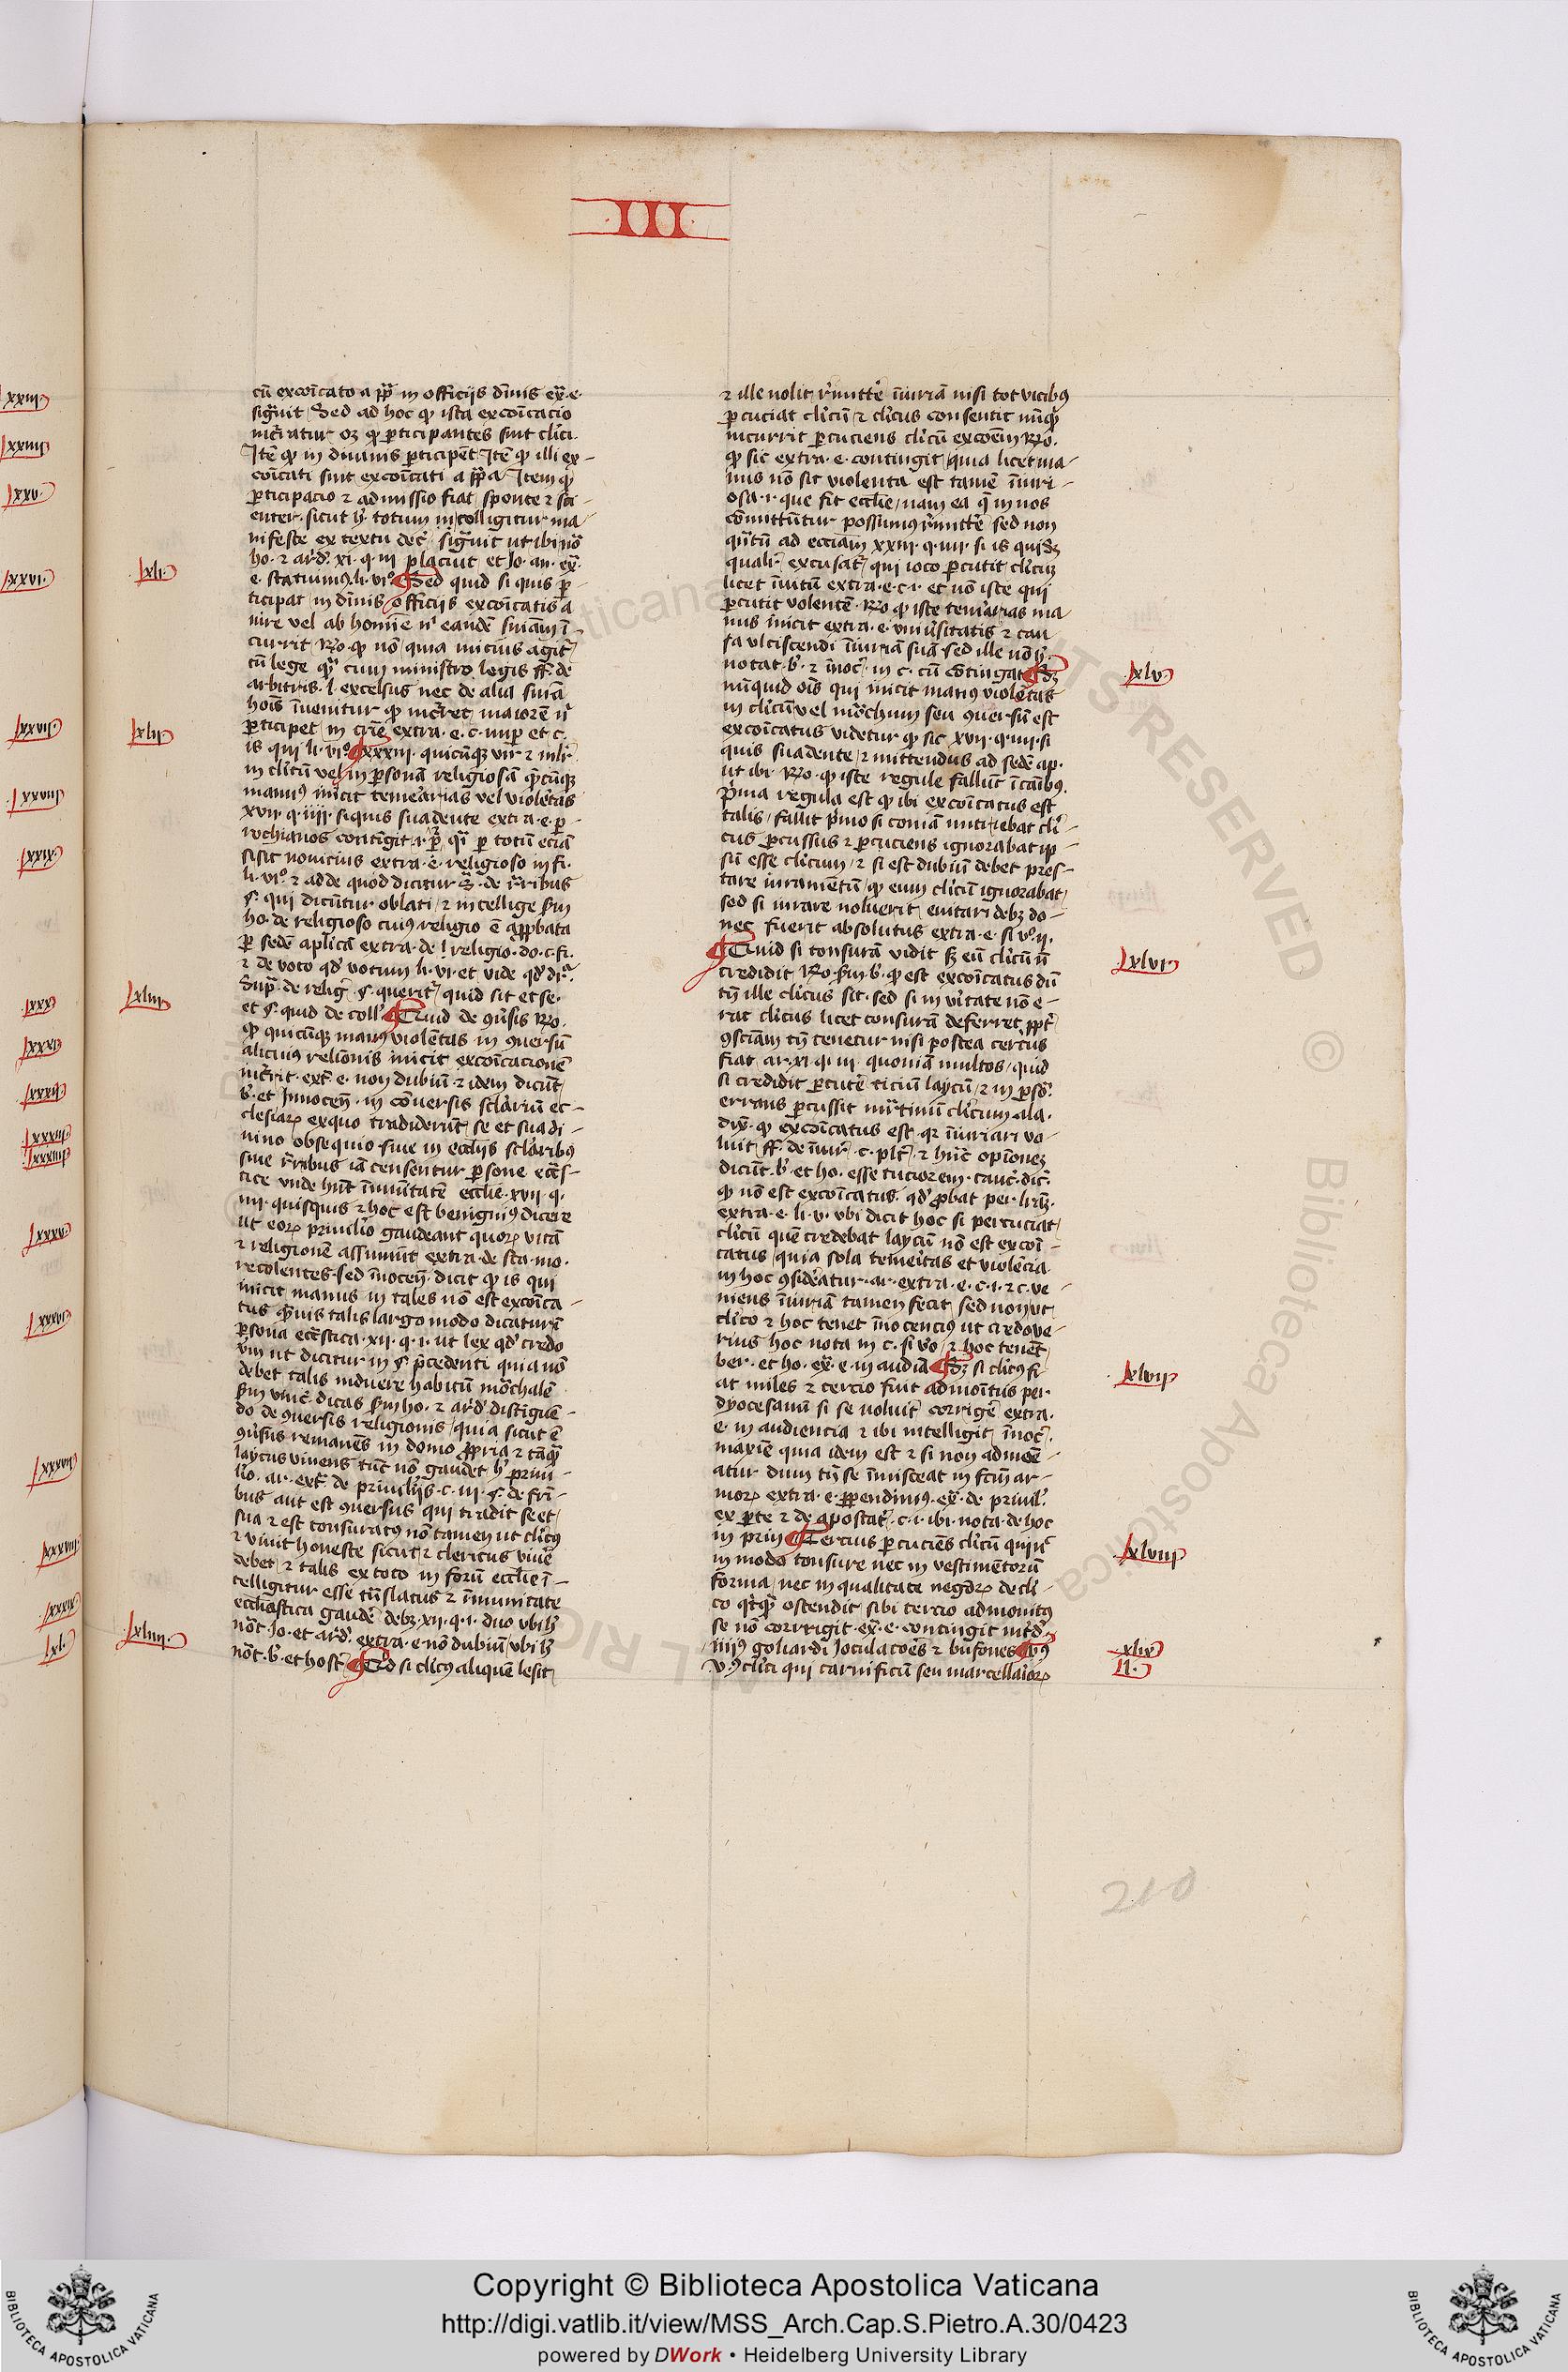 ·III·
cū excōicato a pp̄ in officijs diuīs ex̄·e·
signīt Sed ad hoc qꝫ ista excōicacio
incͥratur oꝫ qꝫ ꝑticipantes sint clici·
Itē qꝫ in diuinis ꝑticipēt Itē qꝫ illi ex-
cōicati sint excōicati a pp̄a Item qꝫ
ꝑticipacio ⁊ admissio fiat sponte ⁊ sci-
enter· sicut h̄ totum intelligitur ma-
nifeste ex textu dec̄ signīt ut ibi nō
ho· ⁊ ard̄· xi· q· iii placuit et Jo· an· ex̄·
e· statuimꝰ li· vi° Sed quid si quis ꝑ-
ticipat in diuīs officijs excōicatis a
iure vel ab homīe
currit Rꝰ qꝫ nō quia micius agit̄
cū lege qͣ cum ministro legis ff· de
arbitris· l· excelsus nec de alia
hoīs īuenitur qꝫ incͥret maiorē
ꝑticipet in crīe extra· e· c· nuꝑ et c·
is qui li· vi° xxxiii· quicūqꝫ vir ⁊
in clicū vel in ꝑsonā religiosā
manus inicit temerarias vel violētas
xvii· q· iiii· siquis suadente extra· e· ꝑ-
rochianos contīgit ꝑ totum eciā
si sit nouicius extra· e· religioso in fi·
li· vi° ⁊ adde quod dicitur
qui dicūtur oblati ⁊ intellige sm̄
ho· de religioso cuiꝰ religio ē appbata
ꝑ sedē aplicā extra· de religio· do· c· fi·
⁊ de voto qd̄ votum li· vi· et vide qd̄
Supͣ· de relig querit̄ quid sit et se·
et quid de coll Quid de ꝯuersis Rꝰ·
qꝫ quicūqꝫ manꝰ violētas in ꝯuersū
alicuius religionis inicit excōicacionē
incͥrit· ext̄· e· non dubiū ⁊ idem dicūt
b̄· et Innocen̄· in cōuersis seclariū ec-
clesiaꝝ exquo tradiderūt se et sua di-
uino obsequio siue in ecclijs seclaribꝰ
siue
tice vnde hn̄t īmunitatē ecclie· xvii· q·
iiii· quisquis ⁊ hoc est benigniꝰ dicere
ut eoꝝ priuilio gaudeant quoꝝ vitā
⁊ religionē assumūt extra· de sta· mo·
recolentes· sed īnocen̄· dicit qꝫ is qui
inicit manus in tales nō est excōica-
tus qͣuis talis largo modo dicatur
ꝑsona eccastica· xii· q· i· ut lex qd̄ credo
ut dicitur in p̄cedenti quia nō
debet talis induere habitū mōchalē
dicas sm̄ ho· ⁊ ard̄· distīguē-
do de ꝯuersis religionis quia sicut ē
ꝯuersus remanēs in domo ꝓpria ⁊ tāqͣ
laycus viuens tūc nō gaudet h̄ priui-
lio· ar· ext̄· de priuilijs· c· iii· de frī-
bus aut est ꝯuersus qui tradit se et
sua ⁊ est tonsuratꝰ nō tamen ut clicꝰ
⁊ viuit honeste sicut ⁊ clericus viue
debet ⁊ talis ex toto in forū ecclie ī-
telligitur esse trāslatus ⁊ īmunitate
ecclesiastica gaude debꝫ xii· q· i· duo ubi h̄
nōt Jo· et ard̄· extra· e· nō dubiū ubi h̄
nōt· b̄· et host̄ Qd si clicꝰ aliquē lesit
⁊ ille nolit remitte īiuriā nisi tot vicibꝰ
ꝑcuciat clicū ⁊ clicus consentit
incurrit ꝑcuciens clicū excōem Rꝰ·
qꝫ sic extra· e· contingit quia licet ma-
nus nō sit violenta est tamē īiuri-
osa· i· que fit ecclie nam ea q̄ in nos
cōmittūtur possumꝰ remitte sed non
q̄ntū ad ecciam xxiii· q· iiii· si is
qualit excusat̄ qui ioco ꝑcutit clicū
licet īuitū extra· e· c· i· et nō iste qui
ꝑcutit volentē· Rꝰ qꝫ iste temerarias ma
nus inicit extra· e· vniusitatis ⁊ cau
sa vlciscendi īiuriā suā· sed ille nō
notat· b̄· ⁊ īnoc̄· in c· cū cōtingat Sꝫ
nūquid oīs qui inicit manꝰ violētas
in clicū vel mōchum seu ꝯuersū est
excōicatus videtur qꝫ sic xvii· q· iiii· si
quis suadente ⁊ mittendus ad sedē ap·
ut ibi Rꝰ· qꝫ iste regule fallūt ī casibꝰ·
Prima regula est qꝫ ibi excōicatus est
talis fallit pͥmo si comā nutriebat cli-
cus ꝑcussus ⁊ ꝑcuciens ignorabat ip-
sū esse clicum ⁊ si est dubiū debet pres-
tare iuramētū qꝫ eum clicū ignorabat
sed si iurare noluerit euitari debꝫ do-
nec fuerit absolutus extra· e· si v°· ii·
Quid si tonsurā vidit sꝫ eū clicū nō
credidit Rꝰ· sm̄· b̄· qꝫ est excōicatus dū
tn̄ ille clicus sit· sed si in v̄itate nō e-
rat clicus licet tonsurā deferret ppt̄
ꝯsciam tn̄ tenetur nisi postea certus
fiat· ar· xi· q· iii· quoniā multos quid
si credidit ꝑcutē ticiū laycū ⁊ in ꝑsō·
errans ꝑcussit martinū clicum ala·
dix̄· qꝫ excōicatus est· qꝛ īiuriari vo-
luit ff· de iniur̄· c· plr̄· ⁊ hūc opionez
dicūt· b̄· et ho· esse tuciorem· tanc̄· dic̄·
qꝫ nō est excōicatus· qd̄ ꝓbat per
extra· e· li· v· vbi dicit hoc si percuciat
clicū quē credebat laycū nō est excōi-
catus quia sola temeritas et violēcia
in hoc ꝯsideratur· ar· extra· e· c· i· ⁊ c· ve-
niens īiuriā tamen fecit sed non ut
clico ⁊ hoc tenet īnocencius ut credo ve-
rius hoc nota in c· si v̄o ⁊ hoc tenēt
ber· et ho· ex̄· e· in audiā Sꝫ si clicꝰ fi-
at miles ⁊ tercio fuit admoītus per
dyocesanū si se noluit corrigē extra·
e· in audiencia ⁊ ibi intelligit īnoc̄·
maxīe quia idem est ⁊ si non admōe-
atur dum tn̄ se īmisceat in fcm̄ ar-
moꝝ extra· e· ꝑpendimꝰ· ex̄· de priuil̄·
ex ꝑte ⁊ de apostat̄· c· i· ibi· nota· de hoc
in prin Tercius ꝑcuciēs clicū qui
in modo tonsure nec in vestimētorū
forma nec in qualitate negōꝝ de cli-
co ostendit sibi tercio admonitꝰ
se nō corrrigit· ex̄· e· contingit
iiiiꝰ goliardi Joculacoēs ⁊ bufones
vꝰ clici qui carnificū seu marcellarioꝝ
xli·
xlii·
xliii
xliiii·
xlv
xlvi
xlvii
xlviii
xlix
l·
xxiii·
xxiiii
xxv
xxvi
xxvii
xxviii
xxix
xxx
xxxi
xxxii
xxxiii
xxxiiii
xxxv
xxxvi
xxxvii
xxxviii
xxxix
xl·
210
ALL RIGHTS RESERVED © Biblioteca Apostolica Vaticana
Copyright © Biblioteca Apostolica Vaticana
http://digi.vatlib.it/view/MSS_Arch.Cap.S.Pietro.A.30/0423
powered by DWork • Heidelberg University Library
BIBLIOTECA APOSTOLICA VATICANA
BIBLIOTECA APOSTOLICA VATICANA